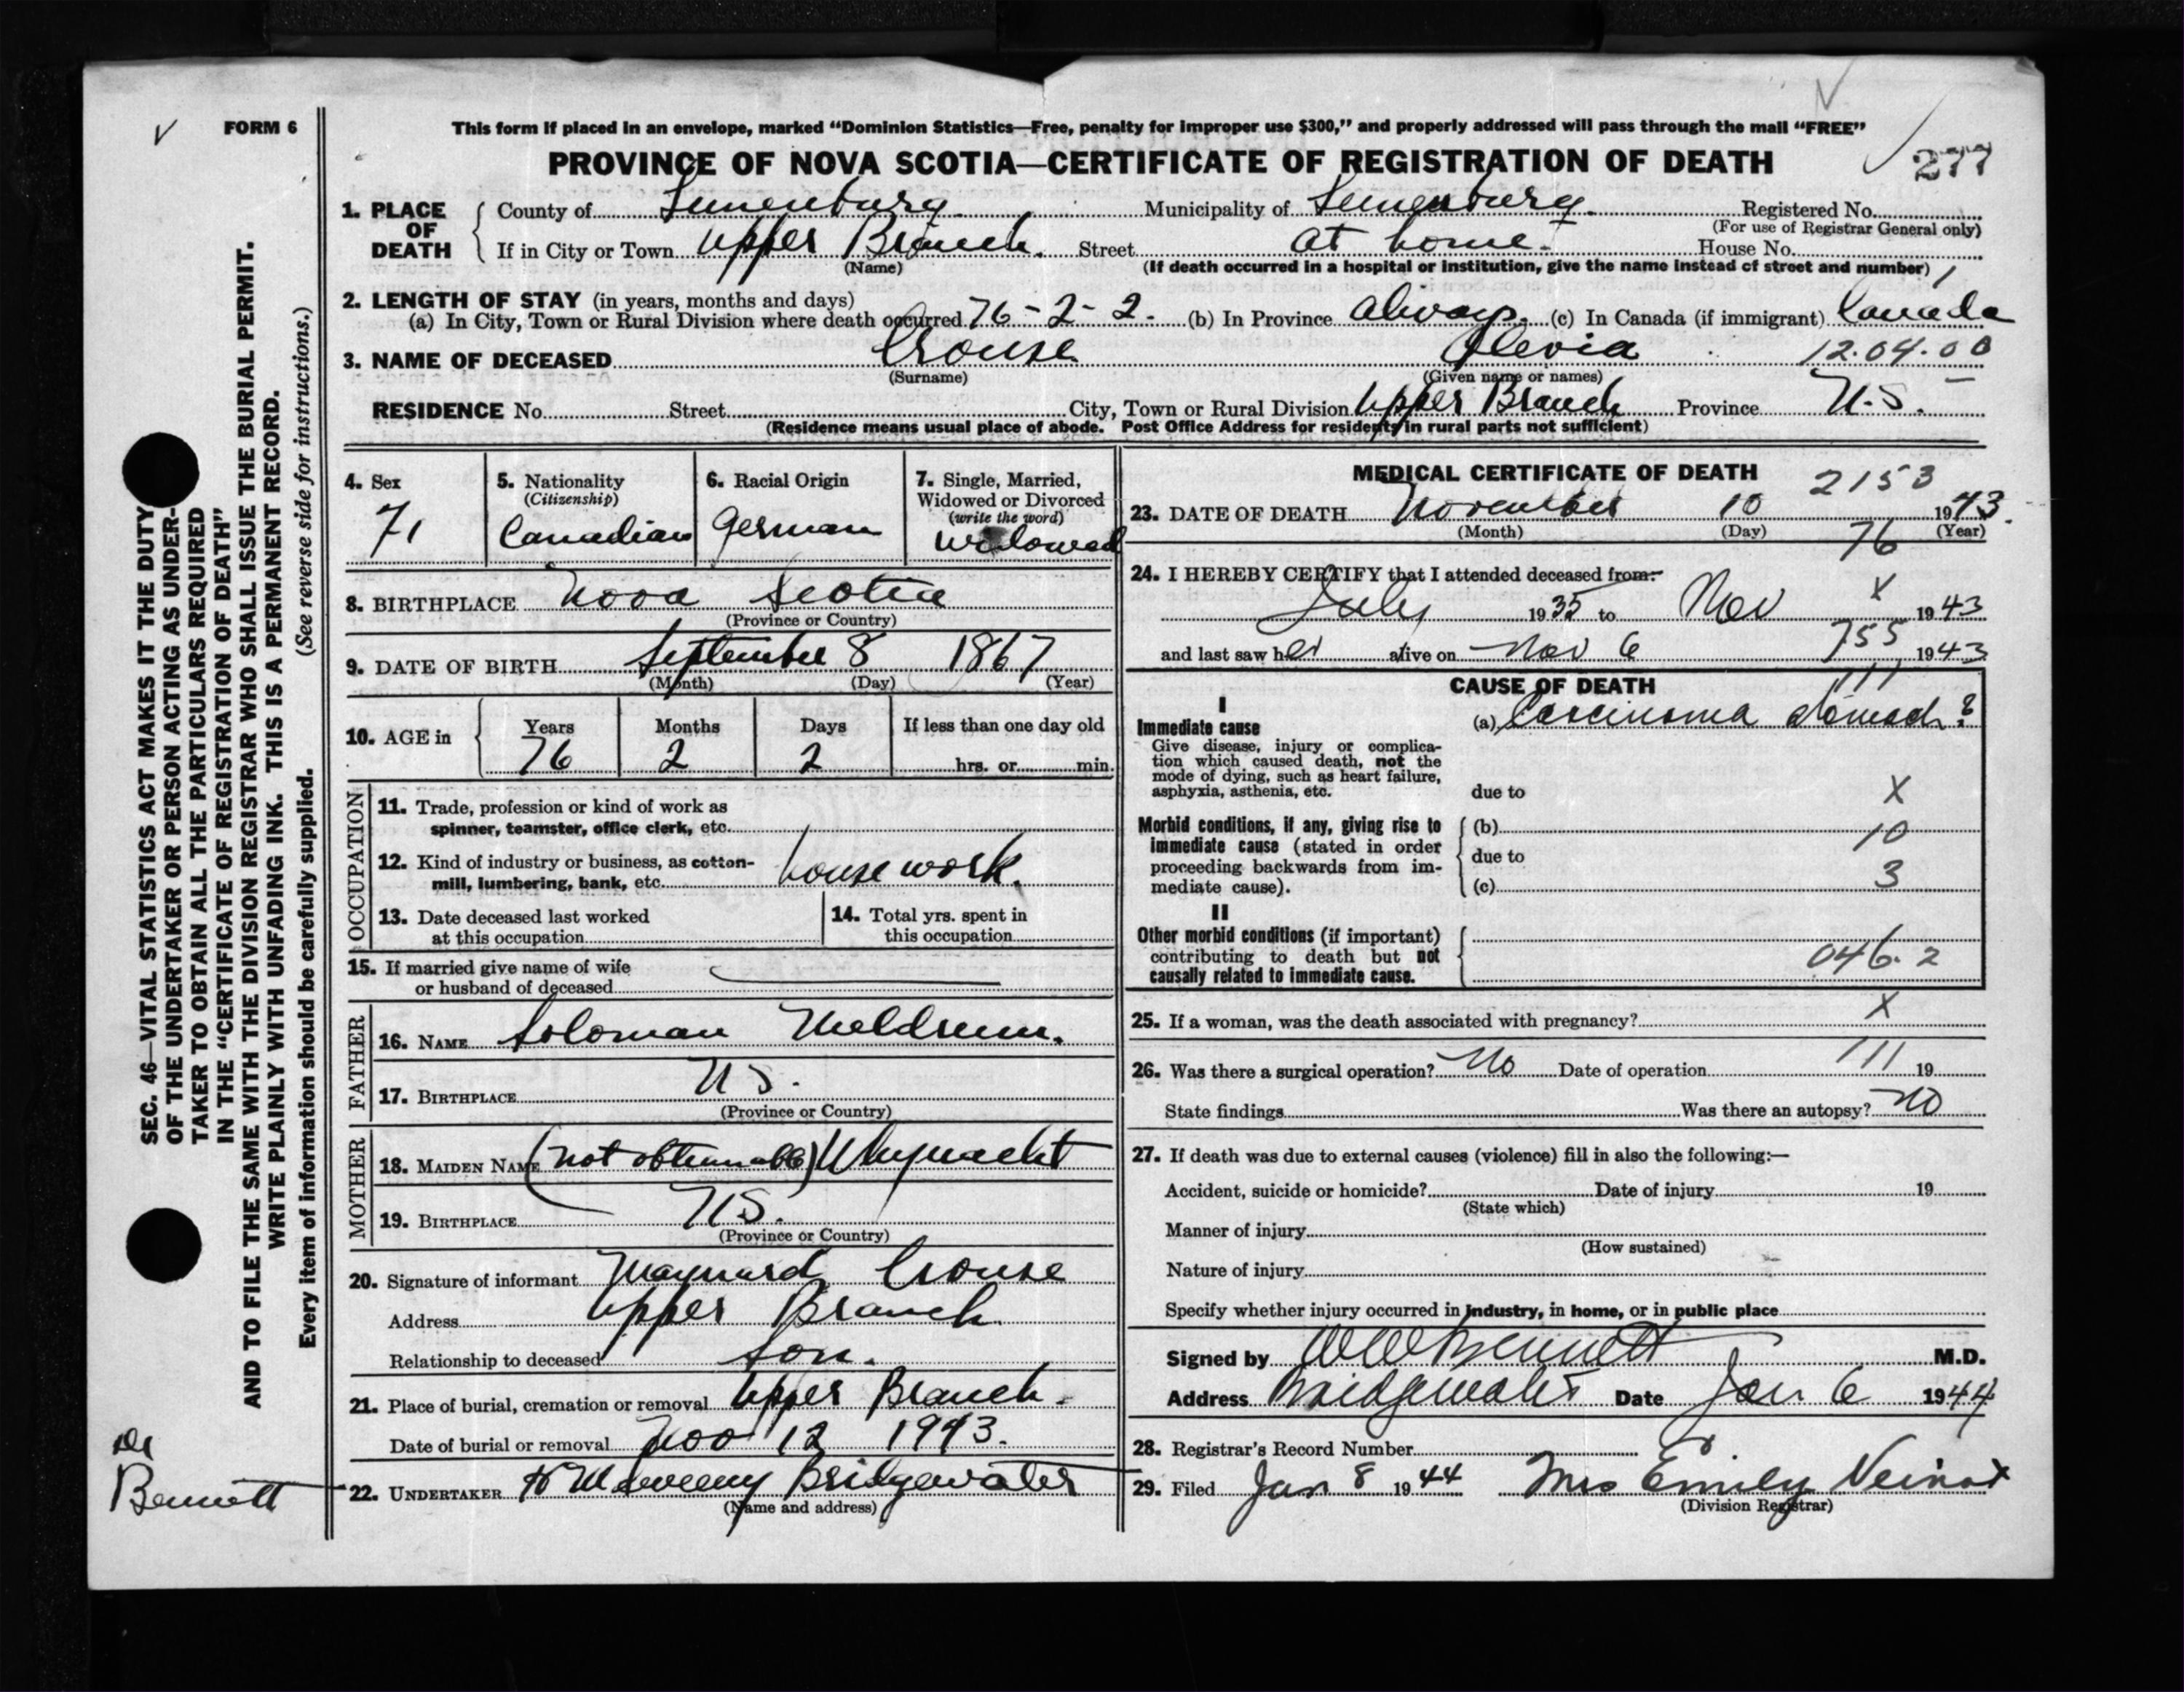 FORM 6
This form if placed in an envelope, marked “Dominion Statistics—Free, penalty for improper use $300,” and properly addressed will pass through the mail “FREE”
PROVINCE OF NOVA SCOTIA—CERTIFICATE OF REGISTRATION OF DEATH
277
1. PLACE OF DEATH
County of Lunenburg Municipality of Lunenburg Registered No.
(For use of Registrar General only)
If in City or Town Upper Branch. Street at home. House No.
(Name)
(If death occurred in a hospital or institution, give the name instead of street and number)
2. LENGTH OF STAY (in years, months and days)
(a) In City, Town or Rural Division where death occurred 76-2-2. (b) In Province always. (c) In Canada (if immigrant) Canada
3. NAME OF DECEASED Crouse Olevia 12.04.00
(Surname) (Given name or names)
RESIDENCE No. Street City, Town or Rural Division Upper Branch Province N.S.
(Residence means usual place of abode. Post Office Address for residents in rural parts not sufficient)
4. Sex
7,
5. Nationality
(Citizenship)
Canadian
6. Racial Origin
German
7. Single, Married,
Widowed or Divorced
(write the word)
Widowed
8. BIRTHPLACE Nova Scotia
(Province or Country)
9. DATE OF BIRTH September 8 1867
(Month) (Day) (Year)
10. AGE in
Years Months Days If less than one day old
76 2 2 hrs. or min.
OCCUPATION
11. Trade, profession or kind of work as
spinner, teamster, office clerk, etc.
12. Kind of industry or business, as cotton-
mill, lumbering, bank, etc. house work.
13. Date deceased last worked
at this occupation
14. Total yrs. spent in
this occupation
15. If married give name of wife
or husband of deceased
FATHER
16. NAME Soloman Meldrum.
17. BIRTHPLACE N S.
(Province or Country)
MOTHER
18. MAIDEN NAME (not obtainable) Whynacht
19. BIRTHPLACE N S.
(Province or Country)
20. Signature of informant Maynard Crouse
Address Upper Branch.
Relationship to deceased son.
21. Place of burial, cremation or removal Upper Branch.
Date of burial or removal Nov 12 1943.
22. UNDERTAKER Bridgewater
(Name and address)
MEDICAL CERTIFICATE OF DEATH
2153
23. DATE OF DEATH November 10 1943.
(Month) (Day) (Year)
76
24. I HEREBY CERTIFY that I attended deceased from:-
X
July 1935 to Nov 1943
755
and last saw her alive on Nov 6 1943
CAUSE OF DEATH
111
I
Immediate cause
Give disease, injury or complica-
tion which caused death, not the
mode of dying, such as heart failure,
asphyxia, asthenia, etc.
(a) Carcinoma stomach?
due to
X
Morbid conditions, if any, giving rise to
immediate cause (stated in order
proceeding backwards from im-
mediate cause).
(b)
10
due to
(c)
3
II
Other morbid conditions (if important)
contributing to death but not
causally related to immediate cause.
046.2
X
25. If a woman, was the death associated with pregnancy?
111
26. Was there a surgical operation? No Date of operation 19
State findings Was there an autopsy? No
27. If death was due to external causes (violence) fill in also the following:—
Accident, suicide or homicide? Date of injury 19
(State which)
Manner of injury
(How sustained)
Nature of injury
Specify whether injury occurred in industry, in home, or in public place
Signed by W W Bennett M.D.
Address Bridgewater Date Jan 6 1944
28. Registrar's Record Number
29. Filed Jan 8 1944 Mrs Emily Veinot
(Division Registrar)
SEC. 46—VITAL STATISTICS ACT MAKES IT THE DUTY
OF THE UNDERTAKER OR PERSON ACTING AS UNDER-
TAKER TO OBTAIN ALL THE PARTICULARS REQUIRED
IN THE “CERTIFICATE OF REGISTRATION OF DEATH”
AND TO FILE THE SAME WITH THE DIVISION REGISTRAR WHO SHALL ISSUE THE BURIAL PERMIT.
WRITE PLAINLY WITH UNFADING INK. THIS IS A PERMANENT RECORD.
Every item of information should be carefully supplied. (See reverse side for instructions.)
Dr
Bennett